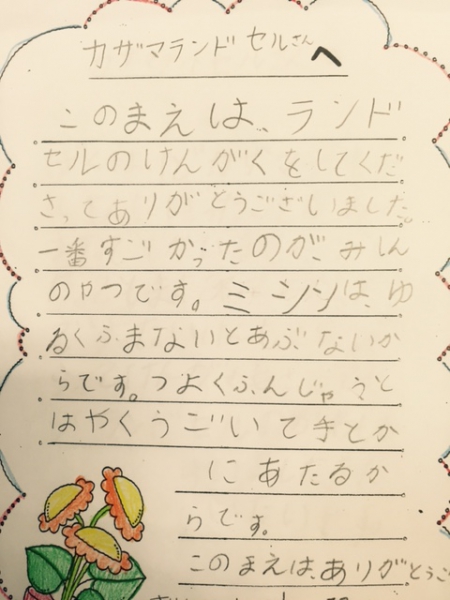 カザマランドセルさんへ
このまえは、ランド
セルのけんがくをしてくだ
さってありがとうございました。
一番すごかったのが、みしん
のやつです。ミシンは、ゆ
るくふまないとあぶないか
らです。つよくふんじゃうと
はやくうごいて手とか
にあたるか
らです。
このまえは、ありがとうご